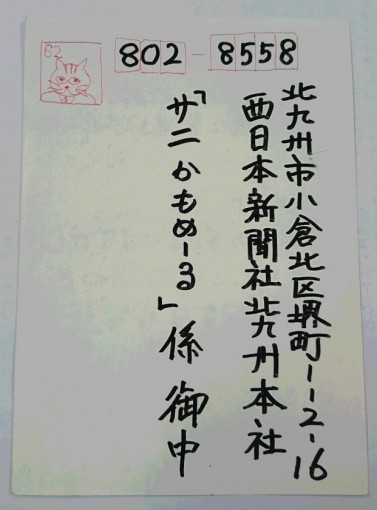 62
802-8558
北九州市小倉北区堺町1-2-16
西日本新聞社北九州本社
「サニかもめーる」係 御中